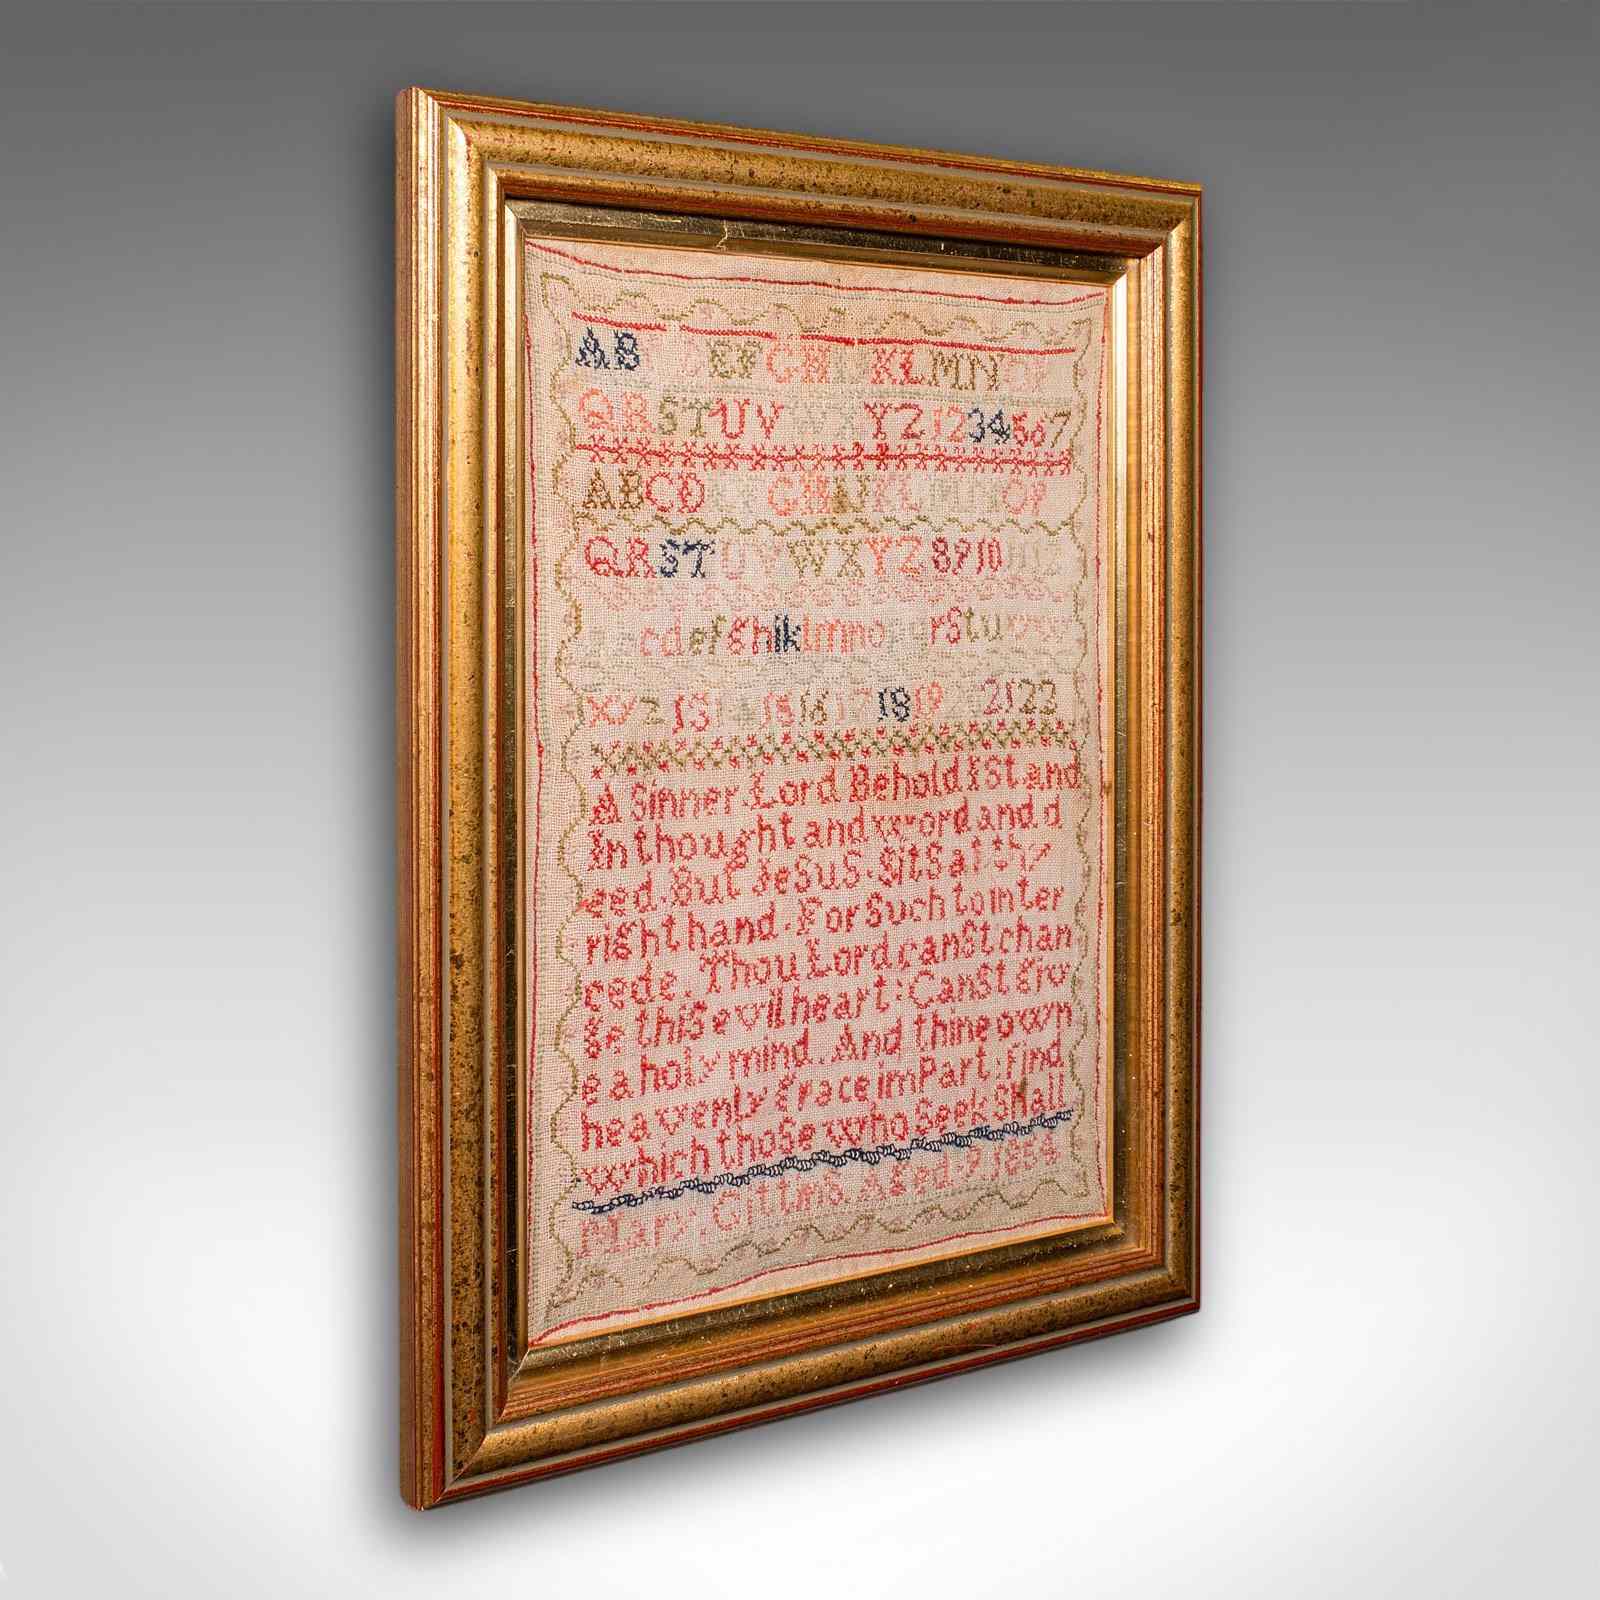 AB DEFGHIKLMNOP
QRSTUVWXYZ1234567
ABCDEFGHIKLMNOP
QRSTUVWXYZ8910
cdefghiklmnopqrstuvw
XYZ 13 14 15 16 17 18 19 20 21 22
A Sinner Lord Behold I Stand
In thought and word and d
eed. But Jesus Sits at thy
right hand. For Such to inter
cede. Thou Lord canst chan
ge this evil heart: Canst giv
e a holy mind. And thine own
heavenly grace impart: Find
which those who Seek Shall
Mary. Gittins. Aged. 9. 1854